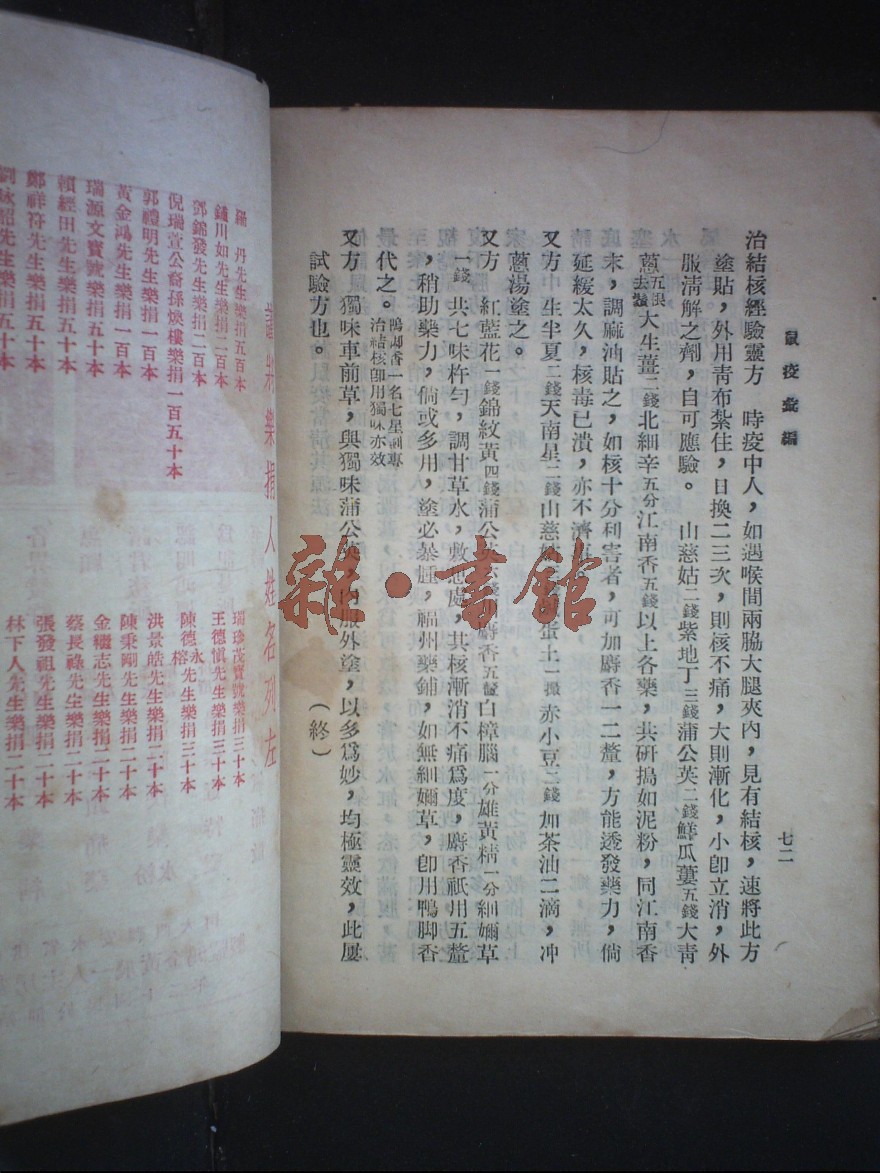 鼠疫彙編
七二
治結核經驗靈方　時疫中人，如遇喉間兩脇大腿夾內，見有結核，速將此方
塗貼，外用青布紮住，日換二三次，則核不痛，大則漸化，小卽立消，外
服清解之劑，自可應驗。　山慈姑二錢紫地丁三錢蒲公英二錢鮮瓜蔞五錢大青
葱五根去鬚大生薑二錢北細辛五分江南香五錢以上各藥，共硏搗如泥粉，同江南香
末，調麻油貼之，如核十分利害者，可加麝香一二釐，方能透發藥力，倘
延緩太久，核毒已潰，亦不濟
又方　生半夏二錢天南星二錢山慈姑 蛋土一撮赤小豆二錢加茶油二滴，冲
葱湯塗之。
又方　紅藍花一錢錦紋黃四錢蒲公英 麝香五釐白樟腦一分雄黃精一分糿嬭草
一錢共七味杵勻，調甘草水，敷患處，其核漸消不痛爲度，麝香祇用五釐
，稍助藥力，倘或多用，塗必暴腫，福州藥鋪，如無糿嬭草，卽用鴨脚香
代之。鴨脚香一名七星剌專治結核卽用獨味亦效
又方　獨味車前草，與獨味蒲公英， 服外塗，以多爲妙，均極靈效，此屢
試驗方也。
（終）
樂捐人姓名列左
丹先生樂捐五百本
鏽川如先生樂捐二百本
鄧錦發先生樂捐二百本
倪瑞萱公裔孫煥樓樂捐一百五十本
郭禮明先生樂捐一百本
黃金鴻先生樂捐一百本
瑞源文寶號樂捐五十本
賴經田先生樂捐五十本
鄭祥符先生樂捐五十本
劉 韶先生樂捐五十本
瑞珍茂寶號樂捐三十本
王德愼先生樂捐三十本
陳德永榕先生樂捐三十本
洪景皓先生樂捐二十本
陳秉剛先生樂捐二十本
金繼志先生樂捐二十本
蔡長祿先生樂捐二十本
張發祖先生樂捐二十本
林下人先生樂捐二十本
雜·書館